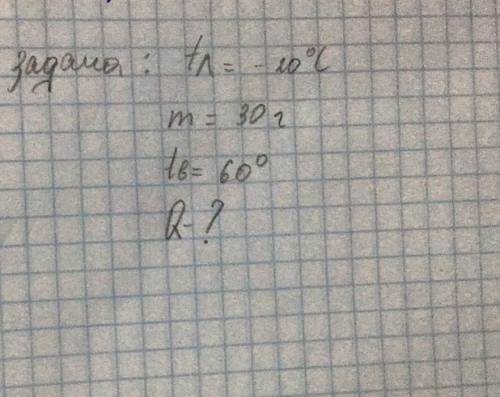 задача : tл = -10°C
m = 30 г
tв = 60°
Q - ?